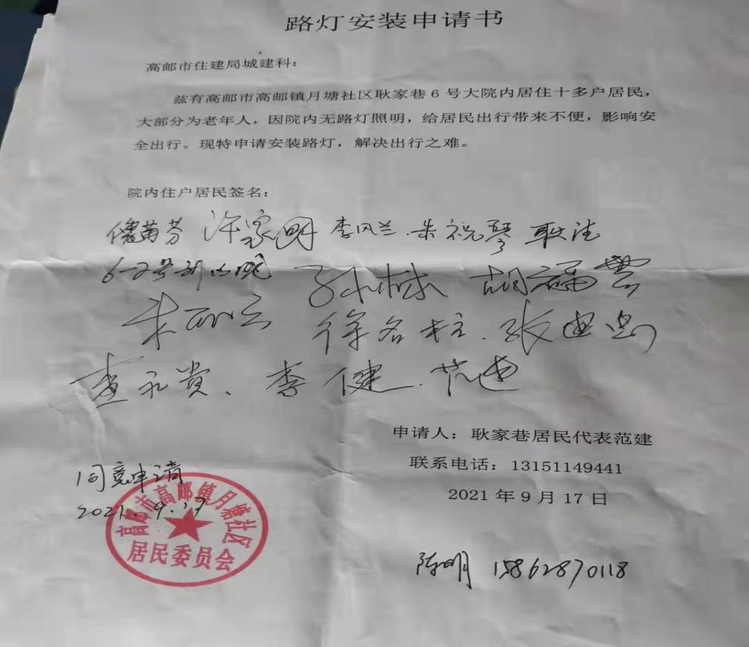 路灯安装申请书
高邮市住建局城建科:
兹有高邮市高邮镇月塘社区耿家巷6号大院内居住十多户居民，
大部分为老年人，因院内无路灯照明，给居民出行带来不便，影响安
全出行。现特申请安装路灯，解决出行之难。
院内住户居民签名:
苗芬 许家 李凤兰. 朱祝琴 耿
6-2号 孙林 胡福云
朱 徐名柱. 张
永贵、李健. 范建
申请人: 耿家巷居民代表范建
联系电话: 13151149441
2021年9月17日
同意申请
2021.9.17
高邮市高邮镇月塘社区
居民委员会
陈明 15862870118